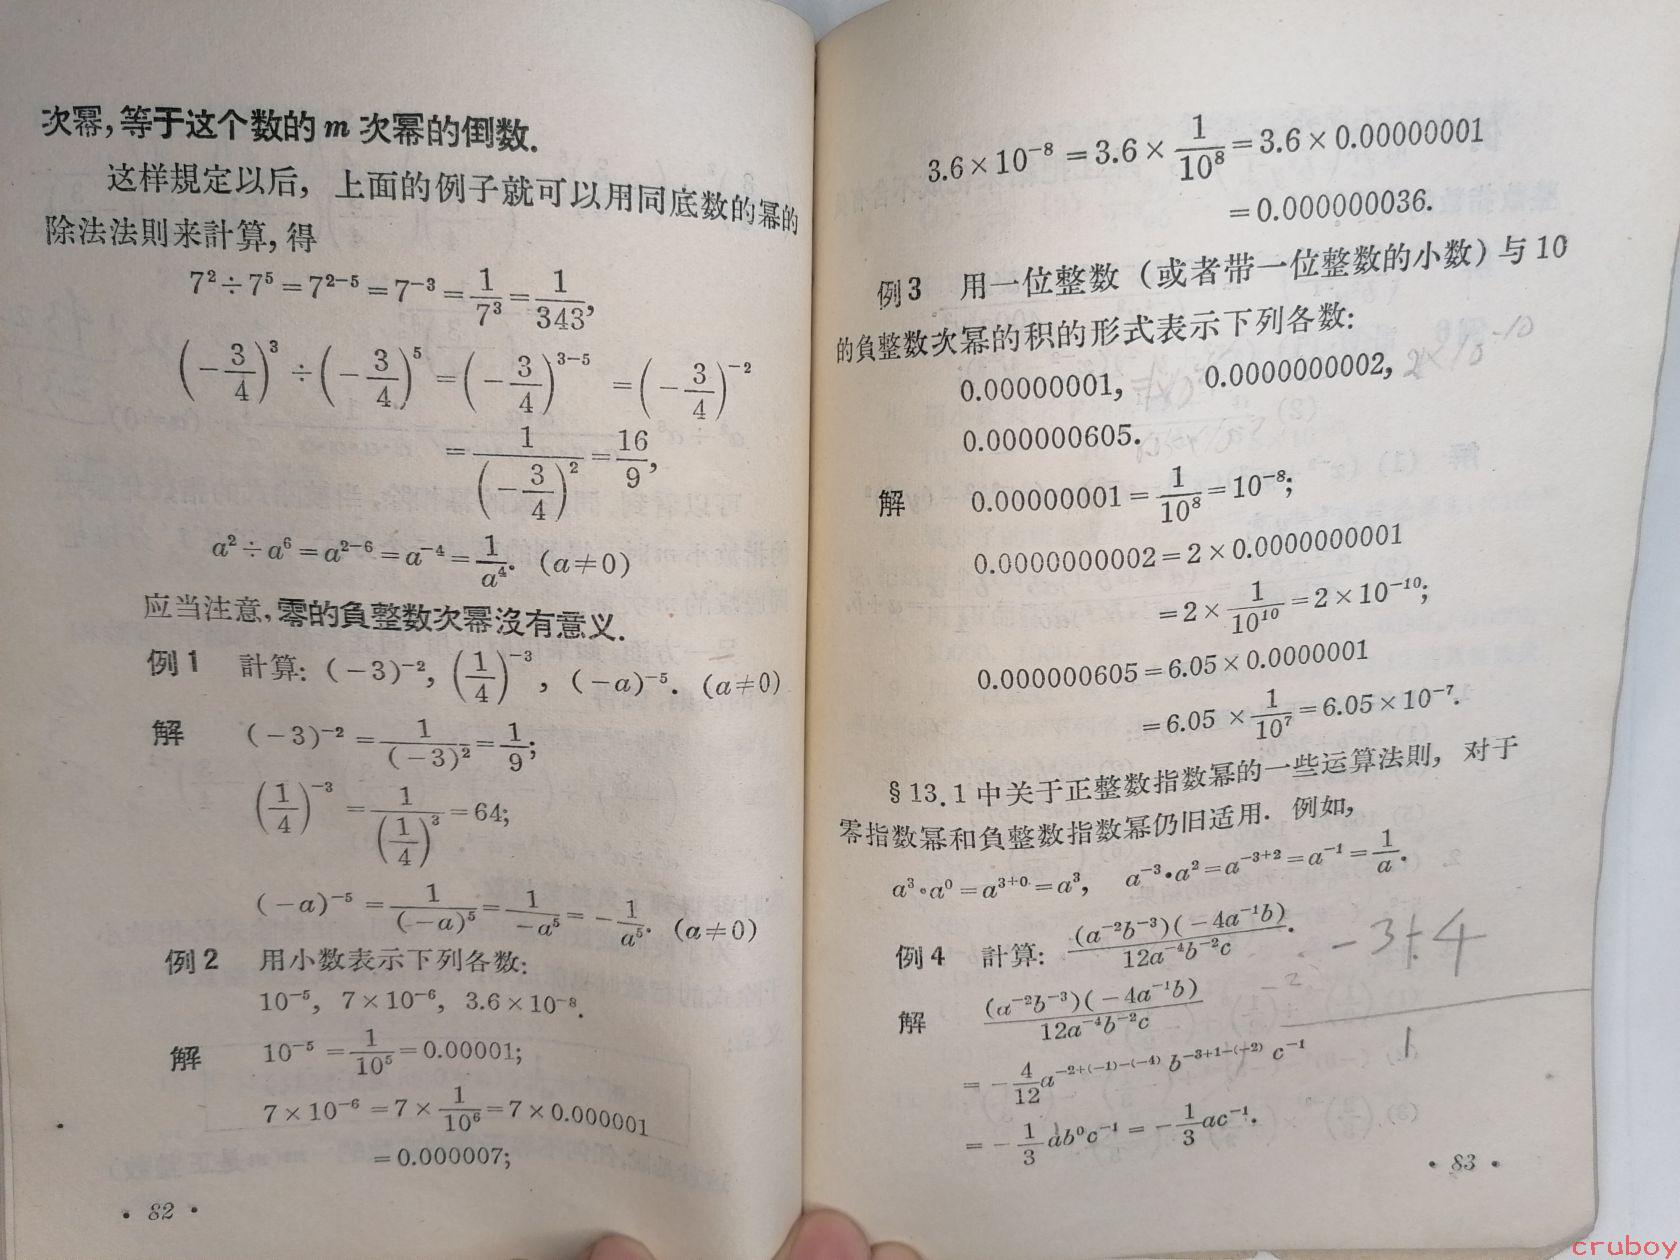 次幂,等于这个数的 m 次幂的倒数.
这样規定以后, 上面的例子就可以用同底数的幂的
除法法則来計算, 得
7² ÷ 7⁵ = 7²⁻⁵ = 7⁻³ = 1/7³ = 1/343,
(-3/4)³ ÷ (-3/4)⁵ = (-3/4)³⁻⁵ = (-3/4)⁻²
= 1/(-3/4)² = 16/9,
a² ÷ a⁶ = a²⁻⁶ = a⁻⁴ = 1/a⁴. (a≠0)
应当注意, 零的負整数次幂沒有意义.
例1 計算: (-3)⁻², (1/4)⁻³, (-a)⁻⁵. (a≠0)
解 (-3)⁻² = 1/(-3)² = 1/9;
(1/4)⁻³ = 1/(1/4)³ = 64;
(-a)⁻⁵ = 1/(-a)⁵ = 1/-a⁵ = -1/a⁵. (a≠0)
例2 用小数表示下列各数:
10⁻⁵, 7×10⁻⁶, 3.6×10⁻⁸.
解 10⁻⁵ = 1/10⁵ = 0.00001;
7×10⁻⁶ = 7×1/10⁶ = 7×0.000001
= 0.000007;
• 82 •
3.6×10⁻⁸ = 3.6×1/10⁸ = 3.6×0.00000001
= 0.000000036.
例3 用一位整数 (或者带一位整数的小数) 与 10
的負整数次幂的积的形式表示下列各数:
0.00000001, 0.0000000002, 2×10⁻¹⁰
0.000000605.
解 0.00000001 = 1/10⁸ = 10⁻⁸;
0.0000000002 = 2×0.0000000001
= 2×1/10¹⁰ = 2×10⁻¹⁰;
0.000000605 = 6.05×0.0000001
= 6.05×1/10⁷ = 6.05×10⁻⁷.
§13.1 中关于正整数指数幂的一些运算法則, 对于
零指数幂和負整数指数幂仍旧适用. 例如,
a³·a⁰ = a³⁺⁰ = a³, a⁻³·a² = a⁻³⁺² = a⁻¹ = 1/a.
例4 計算: (a⁻²b⁻³)(-4a⁻¹b)/12a⁻⁴b⁻²c.
-3+4
解 (a⁻²b⁻³)(-4a⁻¹b)/12a⁻⁴b⁻²c
1
= -4/12 a⁻²⁺⁽⁻¹⁾⁻⁽⁻⁴⁾ b⁻³⁺¹⁻⁽⁻²⁾ c⁻¹
= -1/3 ab⁰c⁻¹ = -1/3 ac⁻¹.
• 83 •
cruboy